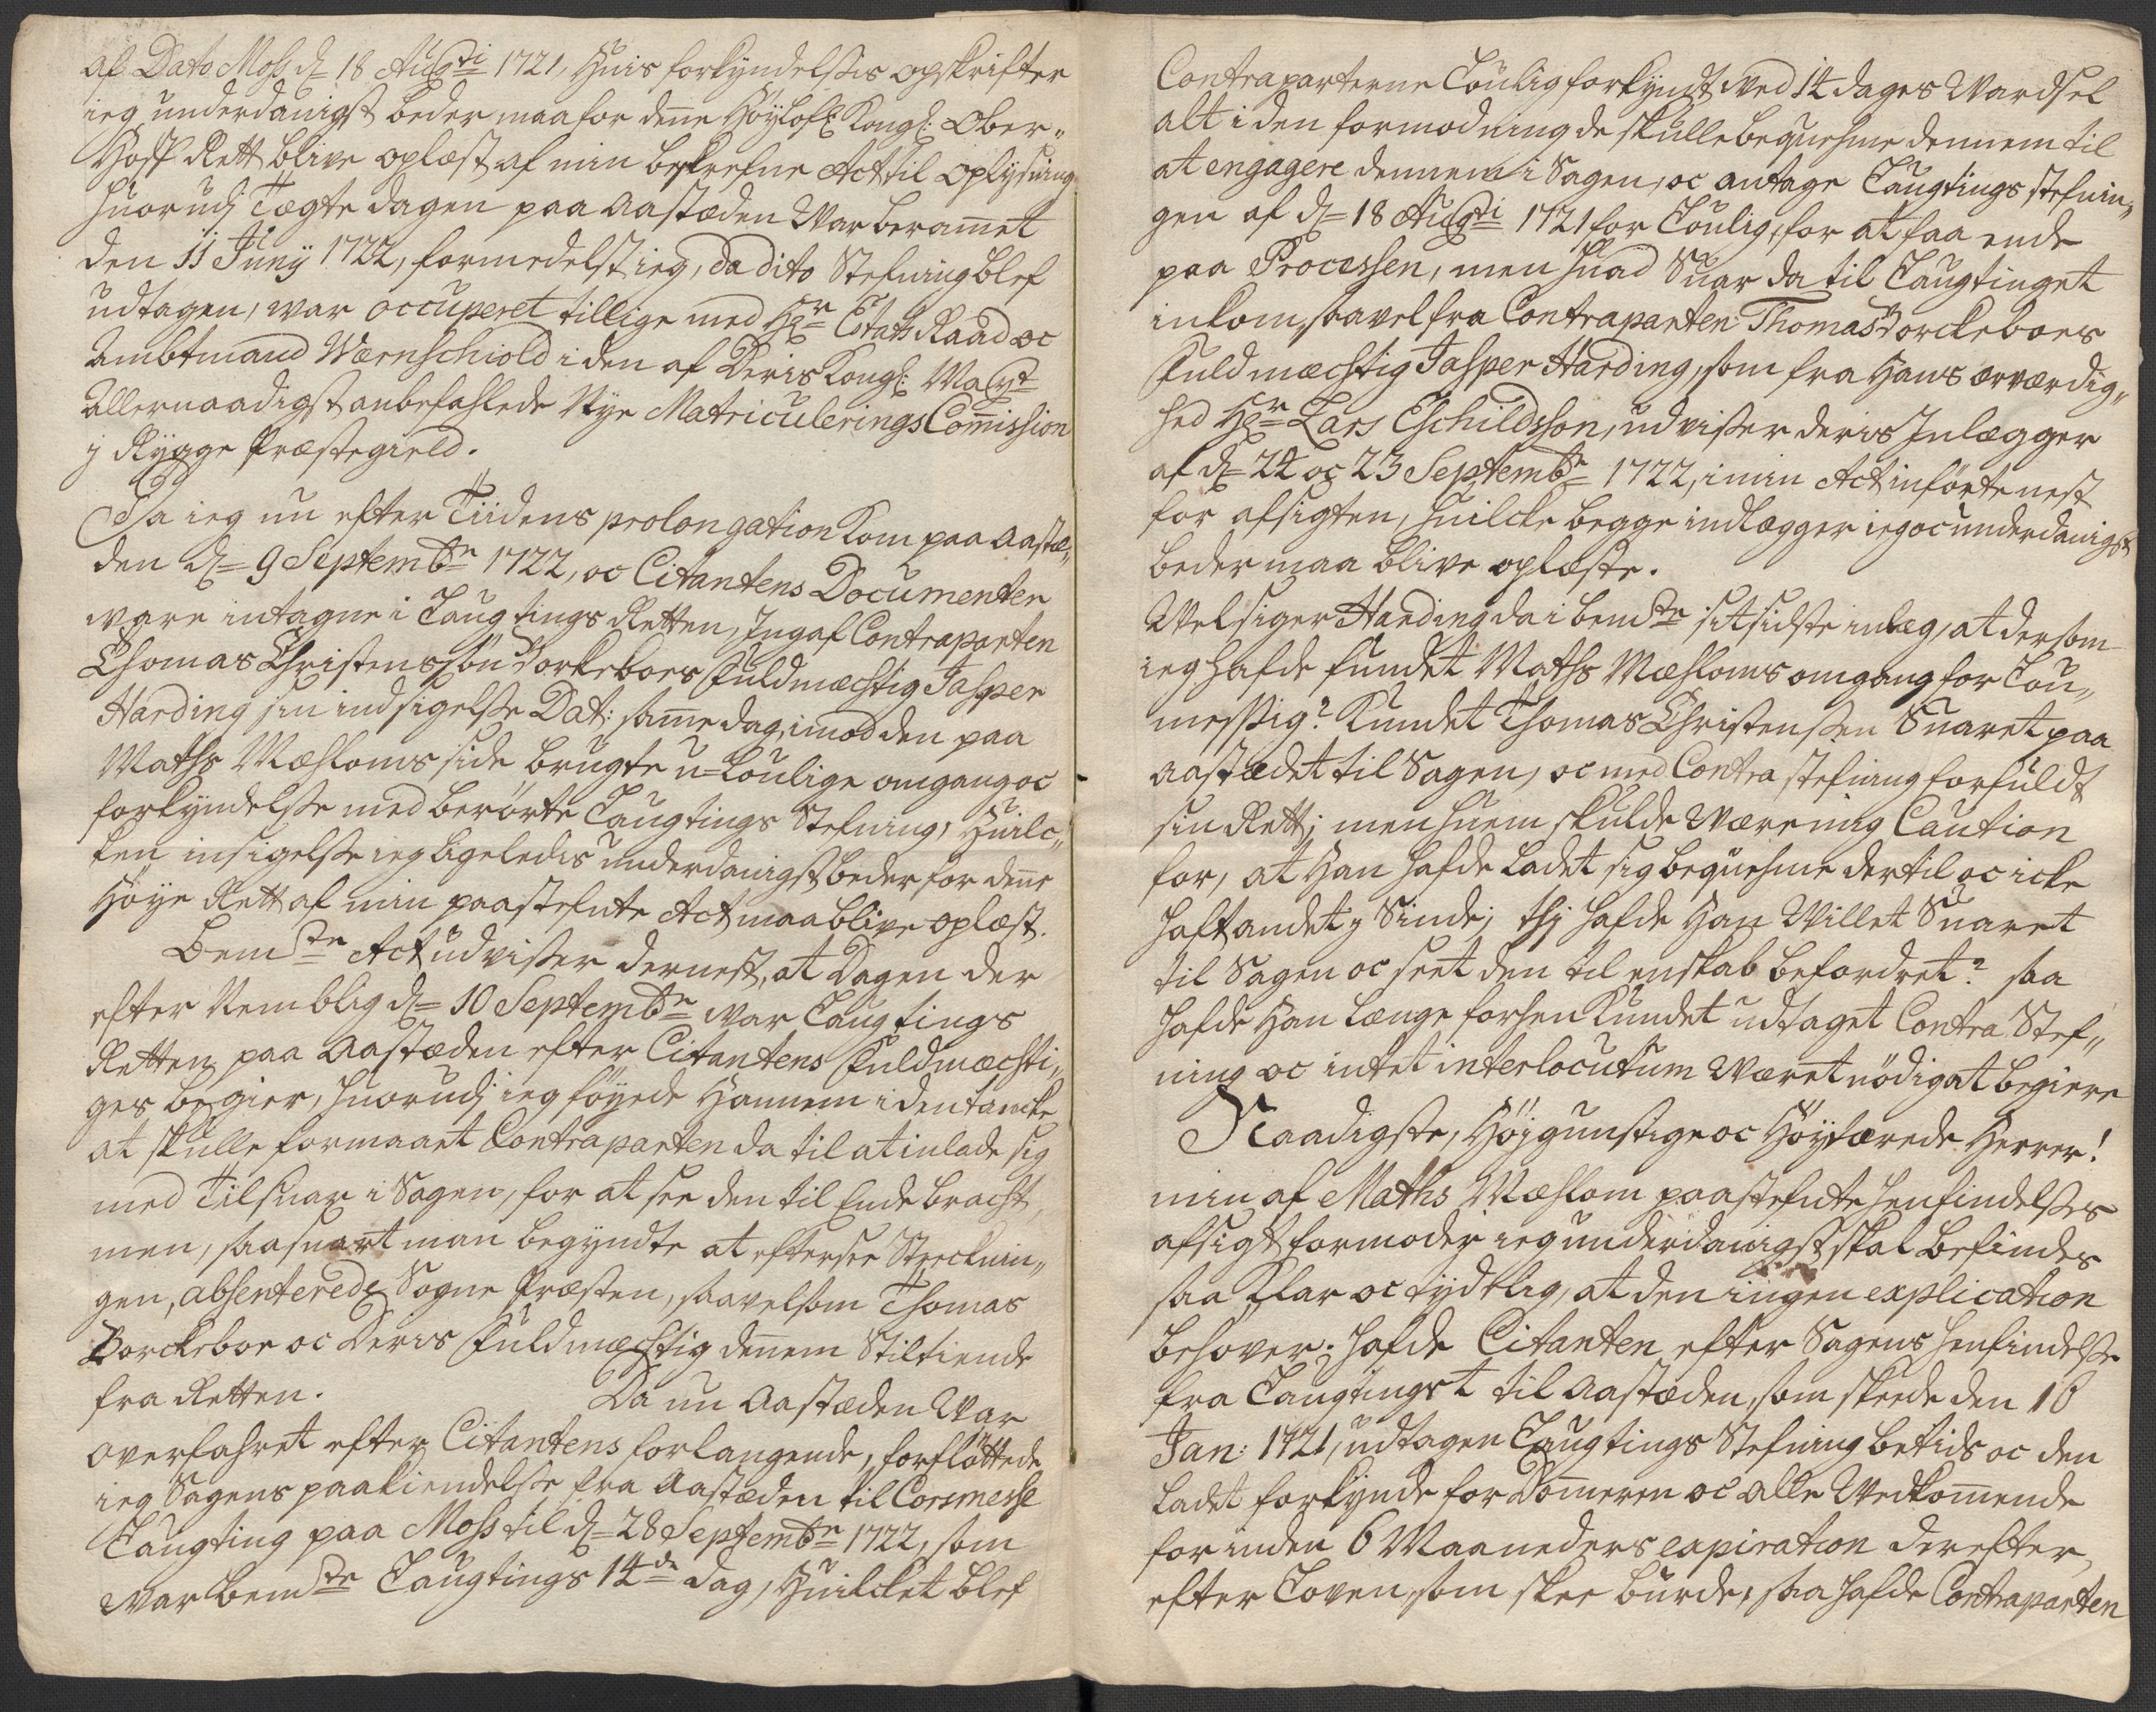 af Dato Moss d= 18 Augsti 1721, Huis forkyndelsses opskrifter
ieg underdanigst beder maa for denne Höylofl: Kongl: Ober„
Hoff Rett blive oplæst af min beskrefne Act til Oplysning
huorudj Tægte dagen paa Aastæden War beramet
den 11 Juny 1722, formedelst ieg, da dito Stefning blef
udtagen, war occuperet tillige med Hr Etats Raad oc
Ambtmand Wærnschiold i den af Deris Kongl: Mayt
Allernaadigst anbefahlede Nye Matriculerings Comission
j Rygge Præstegield.
Da ieg nu efter Tiidens prolongation kom paa Aastæ„
den d= 9 Septembr 1722, oc Citantens Documenter
vare intagne i Laugtings Retten, Ingaf Contraparten
Thomas Christenssön Vorkeboes Fuldmæchtig Jasper
Harding sin indsigelsse Dat: same dag, imod den paa
Maths Mæhloms side brugte u=loulige omgang oc
forkyndelsse med berörte Laugtings Stefning, Huilc„
ken insigelsse ieg ligeledis underdanigst beder for dene
Höye Rett af min paastefnte Act maa blive oplæst.
Bemte Act udvisser dernest, at Dagen der
efter Nemblig d= 10 Septembr war Laugtings
Retten paa Aastæden efter Citantens Fuldmæchti„
ges begier, huorudj ieg föyede Hannem i den tancke
at skulle formaaet Contraparten da til at inlade sig
med Tilsuar i Sagen, for at see den til Ende bracht,
men, saasnart man begyndte at eftersee Strecknin„
gen, absenterede Sogne Præsten, saavelsom Thomas
Vorckeboe oc Deris Fuldmæchtig dennem Stiltiende
fra Retten. Da nu Aastæden War
overfahret efter Citantens forlangende, forflöttede
ieg Sagens paakiendelsse fra Aastæden til Corsmesse
Laugting paa Moss til d= 28 Septembr 1722, som
war bemte Laugtings 14de dag, Huilcket blef
Contraparterne Loulig forkyndt ved 14 dages Wardsel
alt i den formodning de skulle beqvehme dennem til
at engagere dennem i Sagen, oc antage Laugtings stefnin„
gen af d= 18 Augsti 1721 for Loulig, for at faa ende
paa Processen, men huad Suar da til Laugtinget
inkom, saavel fra Contraparten Thomas Vorckeboes
Fuldmæchtig Jasper Harding, som fra Hans ærværdig„
hed Hr Lars Eschildsson, udvisser deris Inlægger
af d= 22 oc 23 Septembr 1722, i min Act införte nest
for afsigten, huilcke begge indlægger ieg oc underdanigst
beder maa blive oplæste.
Vel siger Harding da i bemte sit sidste inlæg, at dersom
ieg hafde fundet Maths Mæhloms omgang for Lou„
messig? kundet Thomas Christenssen Suaret paa
aastædet til Sagen, oc med Contra stefning forfuldt
sin Rett; men huem skulde være mig Caution
for, at Han hafde ladet sig beqvehme dertil oc icke
haft andet j Sinde; thj hafde Han Villet Suaret
til Sagen oc seet den til enskab befordret? saa
hafde Han længe forhen kundet udtaget Contra Stef„
ning oc intet interlocutum Været nödig at begiere
Naadigste, Höjgunstige oc Höylærede Herrer!
min af Maths Mæhlom paastefnte henfindelsses
afsigt formoder ieg underdanigst skal befindes
saa klar oc tydtlig, at den ingen explication
behover. hafde Citanten efter Sagens henfindelsse
fra Laugtinget til Aastæden, som skeede den 16
Jan: 1721, udtagen Laugtings Stefning betids oc den
ladet forkynde for Dommeren oc alle Vedkommende
forinden 6 Maaneders expiration derefter,
efter Loven, som skee burde, saa hafde Contraparten